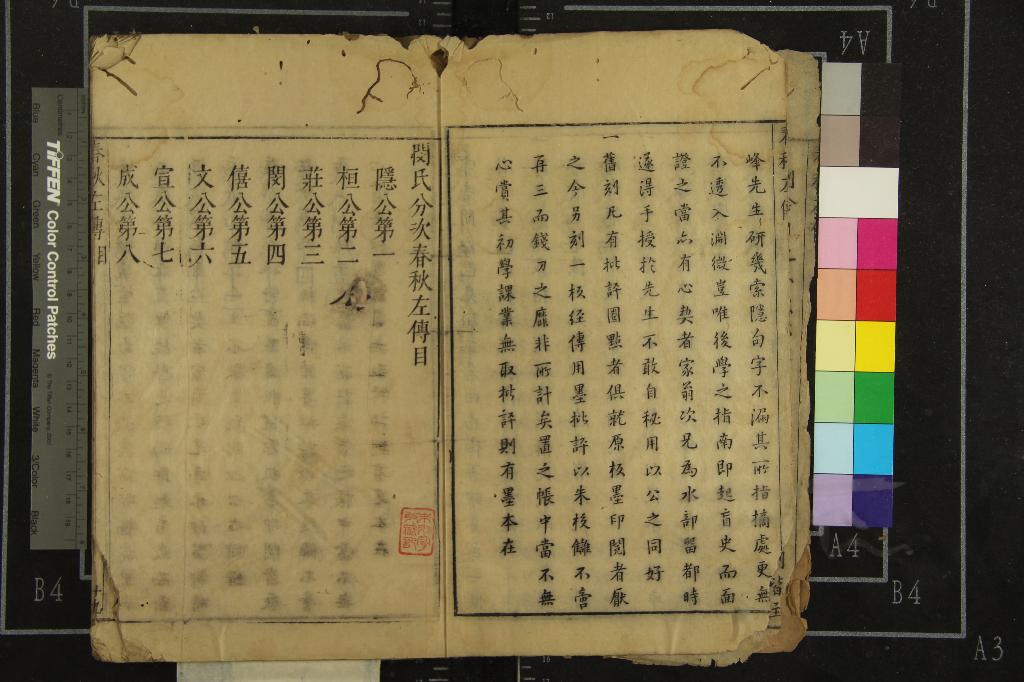 峰先生研幾索隱句字不漏其所指摘處更無
不透入淵微豈唯後學之指南即起盲史而面
證之當亦有心契者家翁次兄為水部留都時
遂得手授於先生不敢自秘用以公之同好
一
舊刻凡有批評圈點者俱就原板墨印閱者厭
之今另刻一板經傳用墨批評以朱校讎不啻
再三而錢刀之靡非所計矣置之帳中當不無
心賞其初學課業無取批評則有墨本在
閔氏分次春秋左傳目
隱公第一
桓公第二
莊公第三
閔公第四
僖公第五
文公第六
宣公第七
成公第八
春秋左傳目
TIFFEN Color Control Patches
Blue
Cyan
Green
Yellow
Red
Magenta
White
3/Color
Black
A4
A4
B4
B4
A3